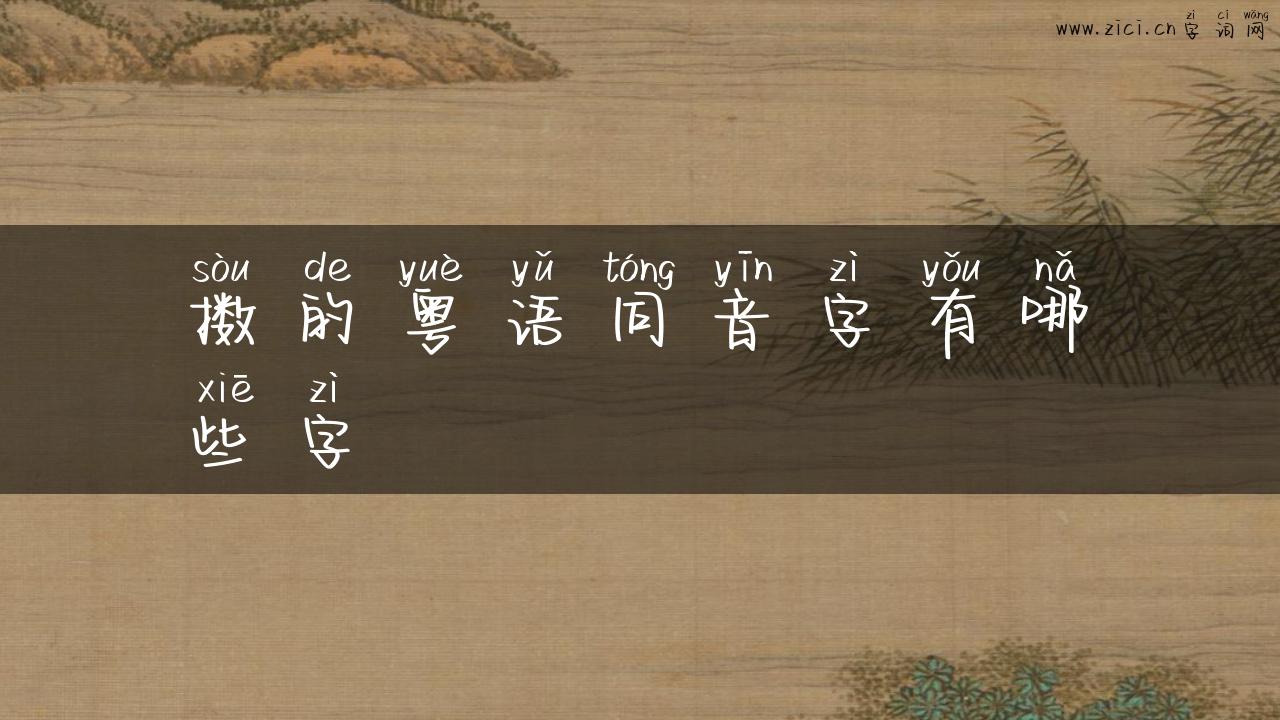 www.zici.cn 字词网
zì cí wǎng
sòu de yuè yǔ tóng yīn zì yǒu nǎ
擞的粤语同音字有哪
xiē zì
些字